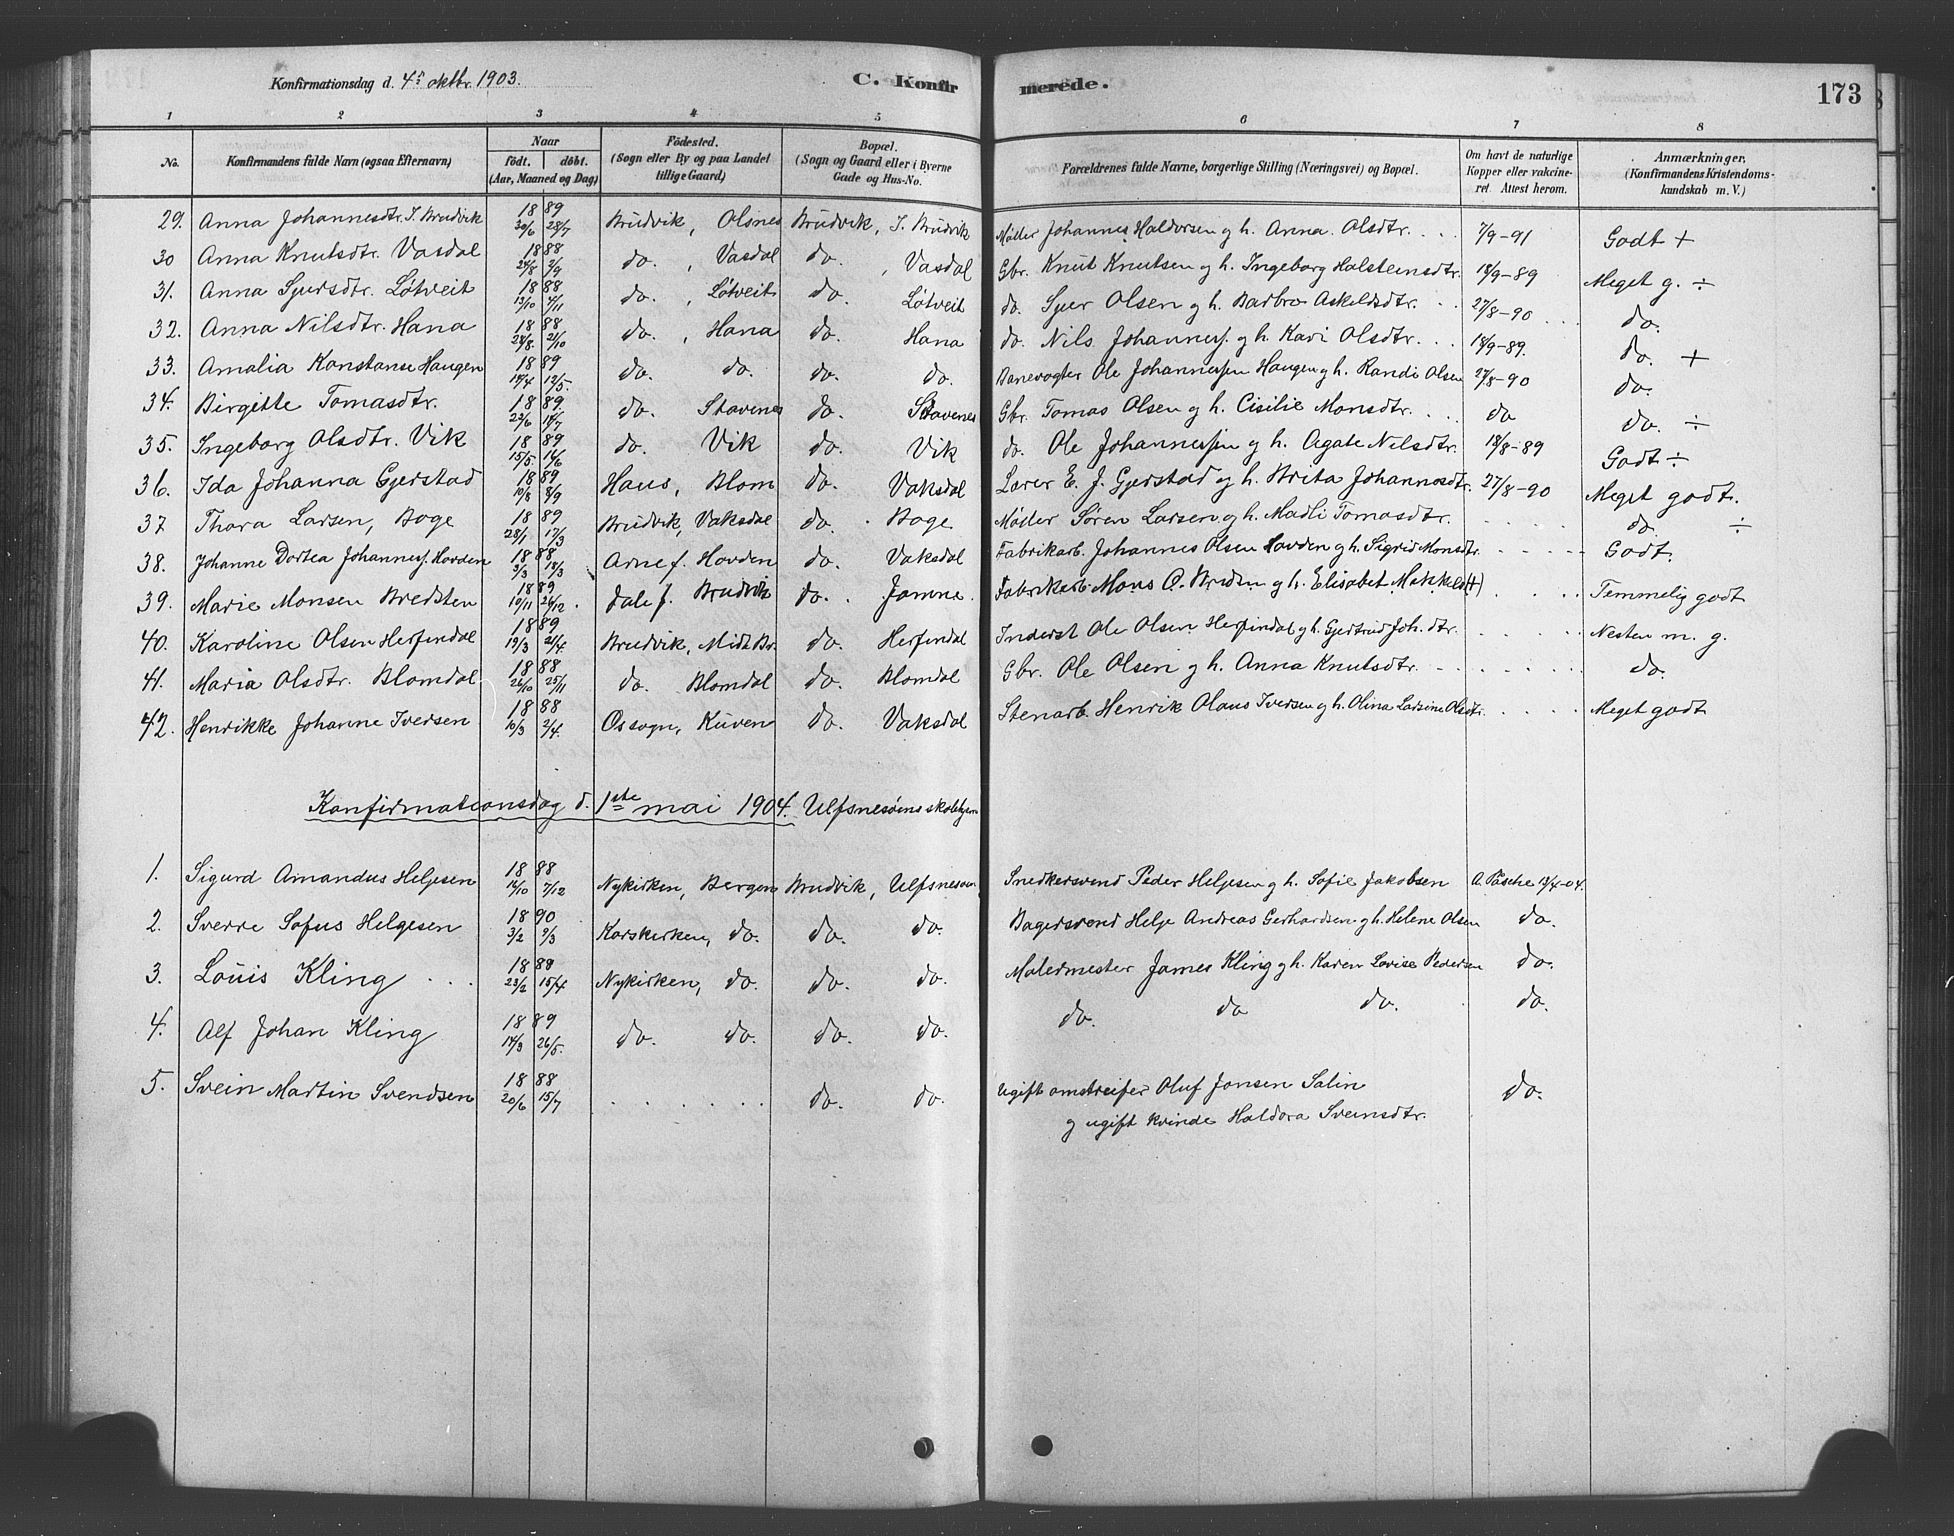 Konfirmationsdag d. 4de oktbr. 1903. C. Konfir merede. 173
1 2 3 4 5 6 7 8
No. Konfirmandens fulde Navn (ogsaa Efternavn) Naar født. døbt. (Aar, Maaned og Dag) Födested. (Sogn eller By og paa Landet tillige Gaard) Bopæl. (Sogn og Gaard eller i Byerne Gade og Hus-No. Forældrenes fulde Navne, borgerlige Stilling (Næringsvei) og Bopæl. Om havt de naturlige Kopper eller vakcineret. Attest herom. Anmærkninger, (Konfirmandens Kristendomskundskab m. V.)
29. Anna Johannesdtr. I. Brudvik 1889 30/6 28/7 Brudvik, Olsnes Brudvik, I. Brudvik Møller Johannes Haldorsen g h. Anna Olsdtr. 7/9-91 Godt +
30 Anna Knutsdtr. Vasdal 1888 24/8 2/9 do., Vasdal do., Vasdal Gbr. Knut Knutsen g h. Ingeborg Holsteinsdtr. 18/9-89 Meget g. ÷
31. Anna Sjursdtr. Løtveit 1888 13/10 4/11 do., Løtveit do. Løtveit do. Sjur Olsen g h. Barbro Askeldsdtr. 27/8-90 do.
32. Anna Nilsdtr. Hana 1888 28/8. 21/10 do., Hana do. Hana do. Nils Johanness. g h. Kari Olsdtr. 18/9-89. do. +
33. Amalia Konstanse Haugen 1889 19/4 12/5. do. do. do. do. Banevogter Ole Johannessen Haugen g h. Randi Olsen 27/8-90 do.
34. Birgitte Tomasdtr. 1889. 22/6 14/7 do. Stavenes do. Stavenes Gbr. Tomas Olsen g h. Cisilie Monsdtr. do do. ÷
35. Ingeborg Olsdtr. Vik 1889 15/5 16/6 do. Vik do. Vik do. Ole Johannessen g h. Agate Nilsdtr. 18/8-89 Godt ÷
36. Ida Johanna Gjerstad 1889 10/8 8/9 Haus, Blom do. Vaksdal Lærer E. J. Gjerstad g h. Brita Johannesdtr. 27/8-90 Meget godt.
37 Thora Larsen, Boge 1889 28/1 17/3 Brudvik, Vaksdal do. Boge Møller Søren Larsen g h. Madli Tomasdtr. do. ÷
38. Johanne Dortea Johanness. Hovden 1888 3/3 18/3 Arne s. Hovden do. Vaksdal Fabrikarb. Johannes Olsen Hovden g h. Sigrid Monsdtr. Godt
39. Marie Monsen Bredsten 1889 10/11 26/12. Dale s. Brudvik do. Jamne. Fabrikarb. Mons O. Breds'n g h. Elisabet Mikkelsd(+) Temmelig godt
40. Karoline Olsen Herfindal 1889 19/3 21/4 Brudvik, Midt Br. do. Herfindal Inderst Ole Olsen Herfindal g h. Gjertrud Joh. dtr. Nesten m. g.
41. Maria Olsdtr. Blomdal 1888 26/10 25/11 do. Blomdal do. Blomdal Gbr. Ole Olsen g h. Anna Knutsdtr. do.
42. Henrikke Johanne Iversen 1888 10/3 2/4. Ossogn, Kuven do. Vaksdal Stenarb. Henrik Olaus Iversen g h. Olina Larsine Olsdtr. Meget godt
Konfirmationsdag d. 1ste mai 1904. Ulfsnesøens skolehjem
1. Sigurd Amandus Helgesen 1888 14/10 7/12 Nykirken, Bergen Brudvik, Ulfsnesøen Snedkersvend Peder Helgesen g h. Sofie Jakobsen A. Pasche 13/4-04.
2. Sverre Sofus Helgesen 1890 3/2 9/3 Korskirken, do. do. do. Bagersvend Helge Andreas Gerhardsen g h. Helene Olsen do.
3. Louis Kling 1888 23/2 15/4 Nykirken, do. do. do. Malermester James Kling g h. Karen Lovise Pedersen do.
4. Alf Johan Kling 1889 14/3 26/5. do. do. do. do. do. do do. do.
5. Svein Martin Svendsen 1888 20/6 15/7 do. do. Ugift omstreifer Oluf Jonsen Salin do.
g ugift kvinde Haldora Sveinsdtr.